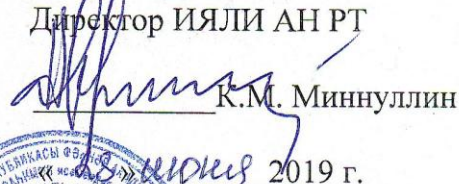 Директор ИЯЛИ АН РТ
К.М. Миннуллин
« » июня 2019 г.